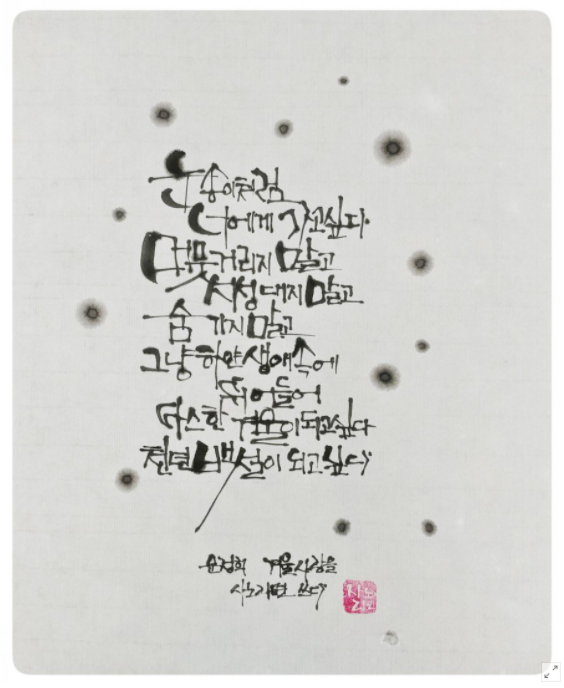 눈송이처럼
너에게 가고싶다.
머뭇거리지 말고
서성대지 말고
숨기지 말고
그냥 하얀 생애속에
뛰어들어
따스한 겨울이 되고싶다
천년백설이 되고싶다
문정희 겨울사랑을
쓰다